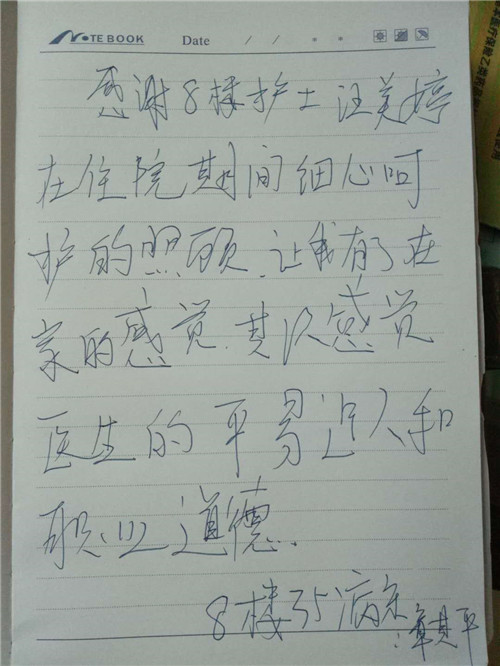 NOTEBOOK Date / /
感谢8楼护士汪美婷
在住院期间细心呵
护的照顾.让我有了在
家的感觉.其次感觉
医生的平易近人和
职业道德.
8楼35病床
:章其平